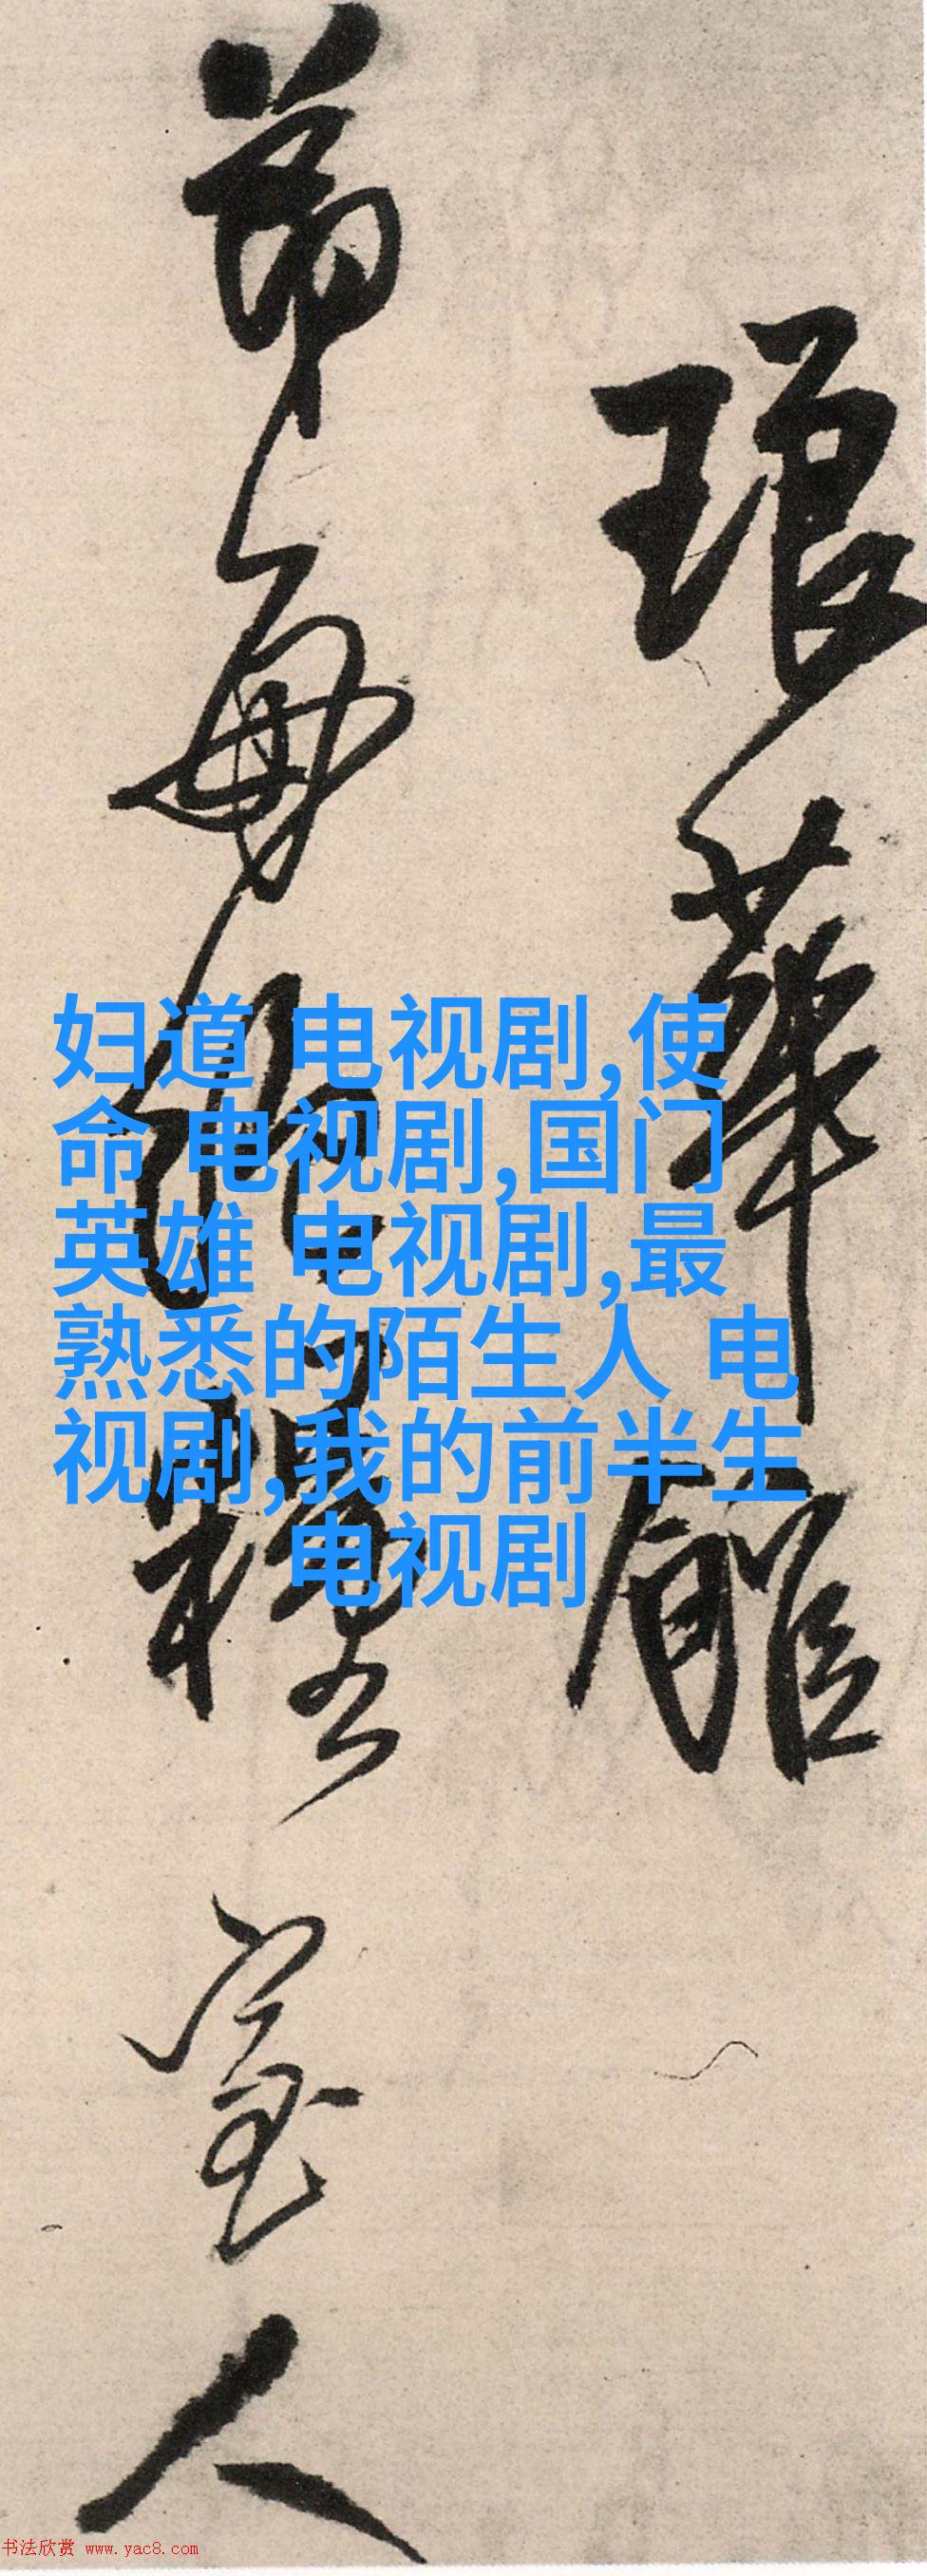 琅華館
妇道 电视剧,使
命 电视剧,国门
英雄 电视剧,最
熟悉的陌生人 电
视剧,我的前半生
电视剧
人
书法欣赏 www.yac8.com